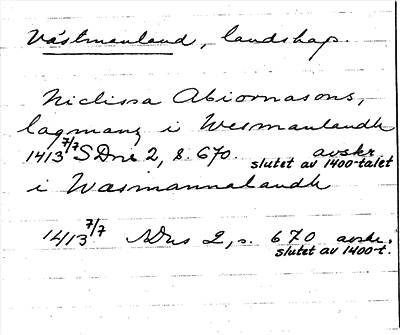 Västmanland, landskap.
Niclissa Abiornasons,
lagmanz i Wesmanlandh
1413 7/7 SDns 2, s. 670. avskr.
slutet av 1400-talet
i Wæsmannalandh
1413 7/7 SDns 2, s. 670 avskr.
slutet av 1400-t.